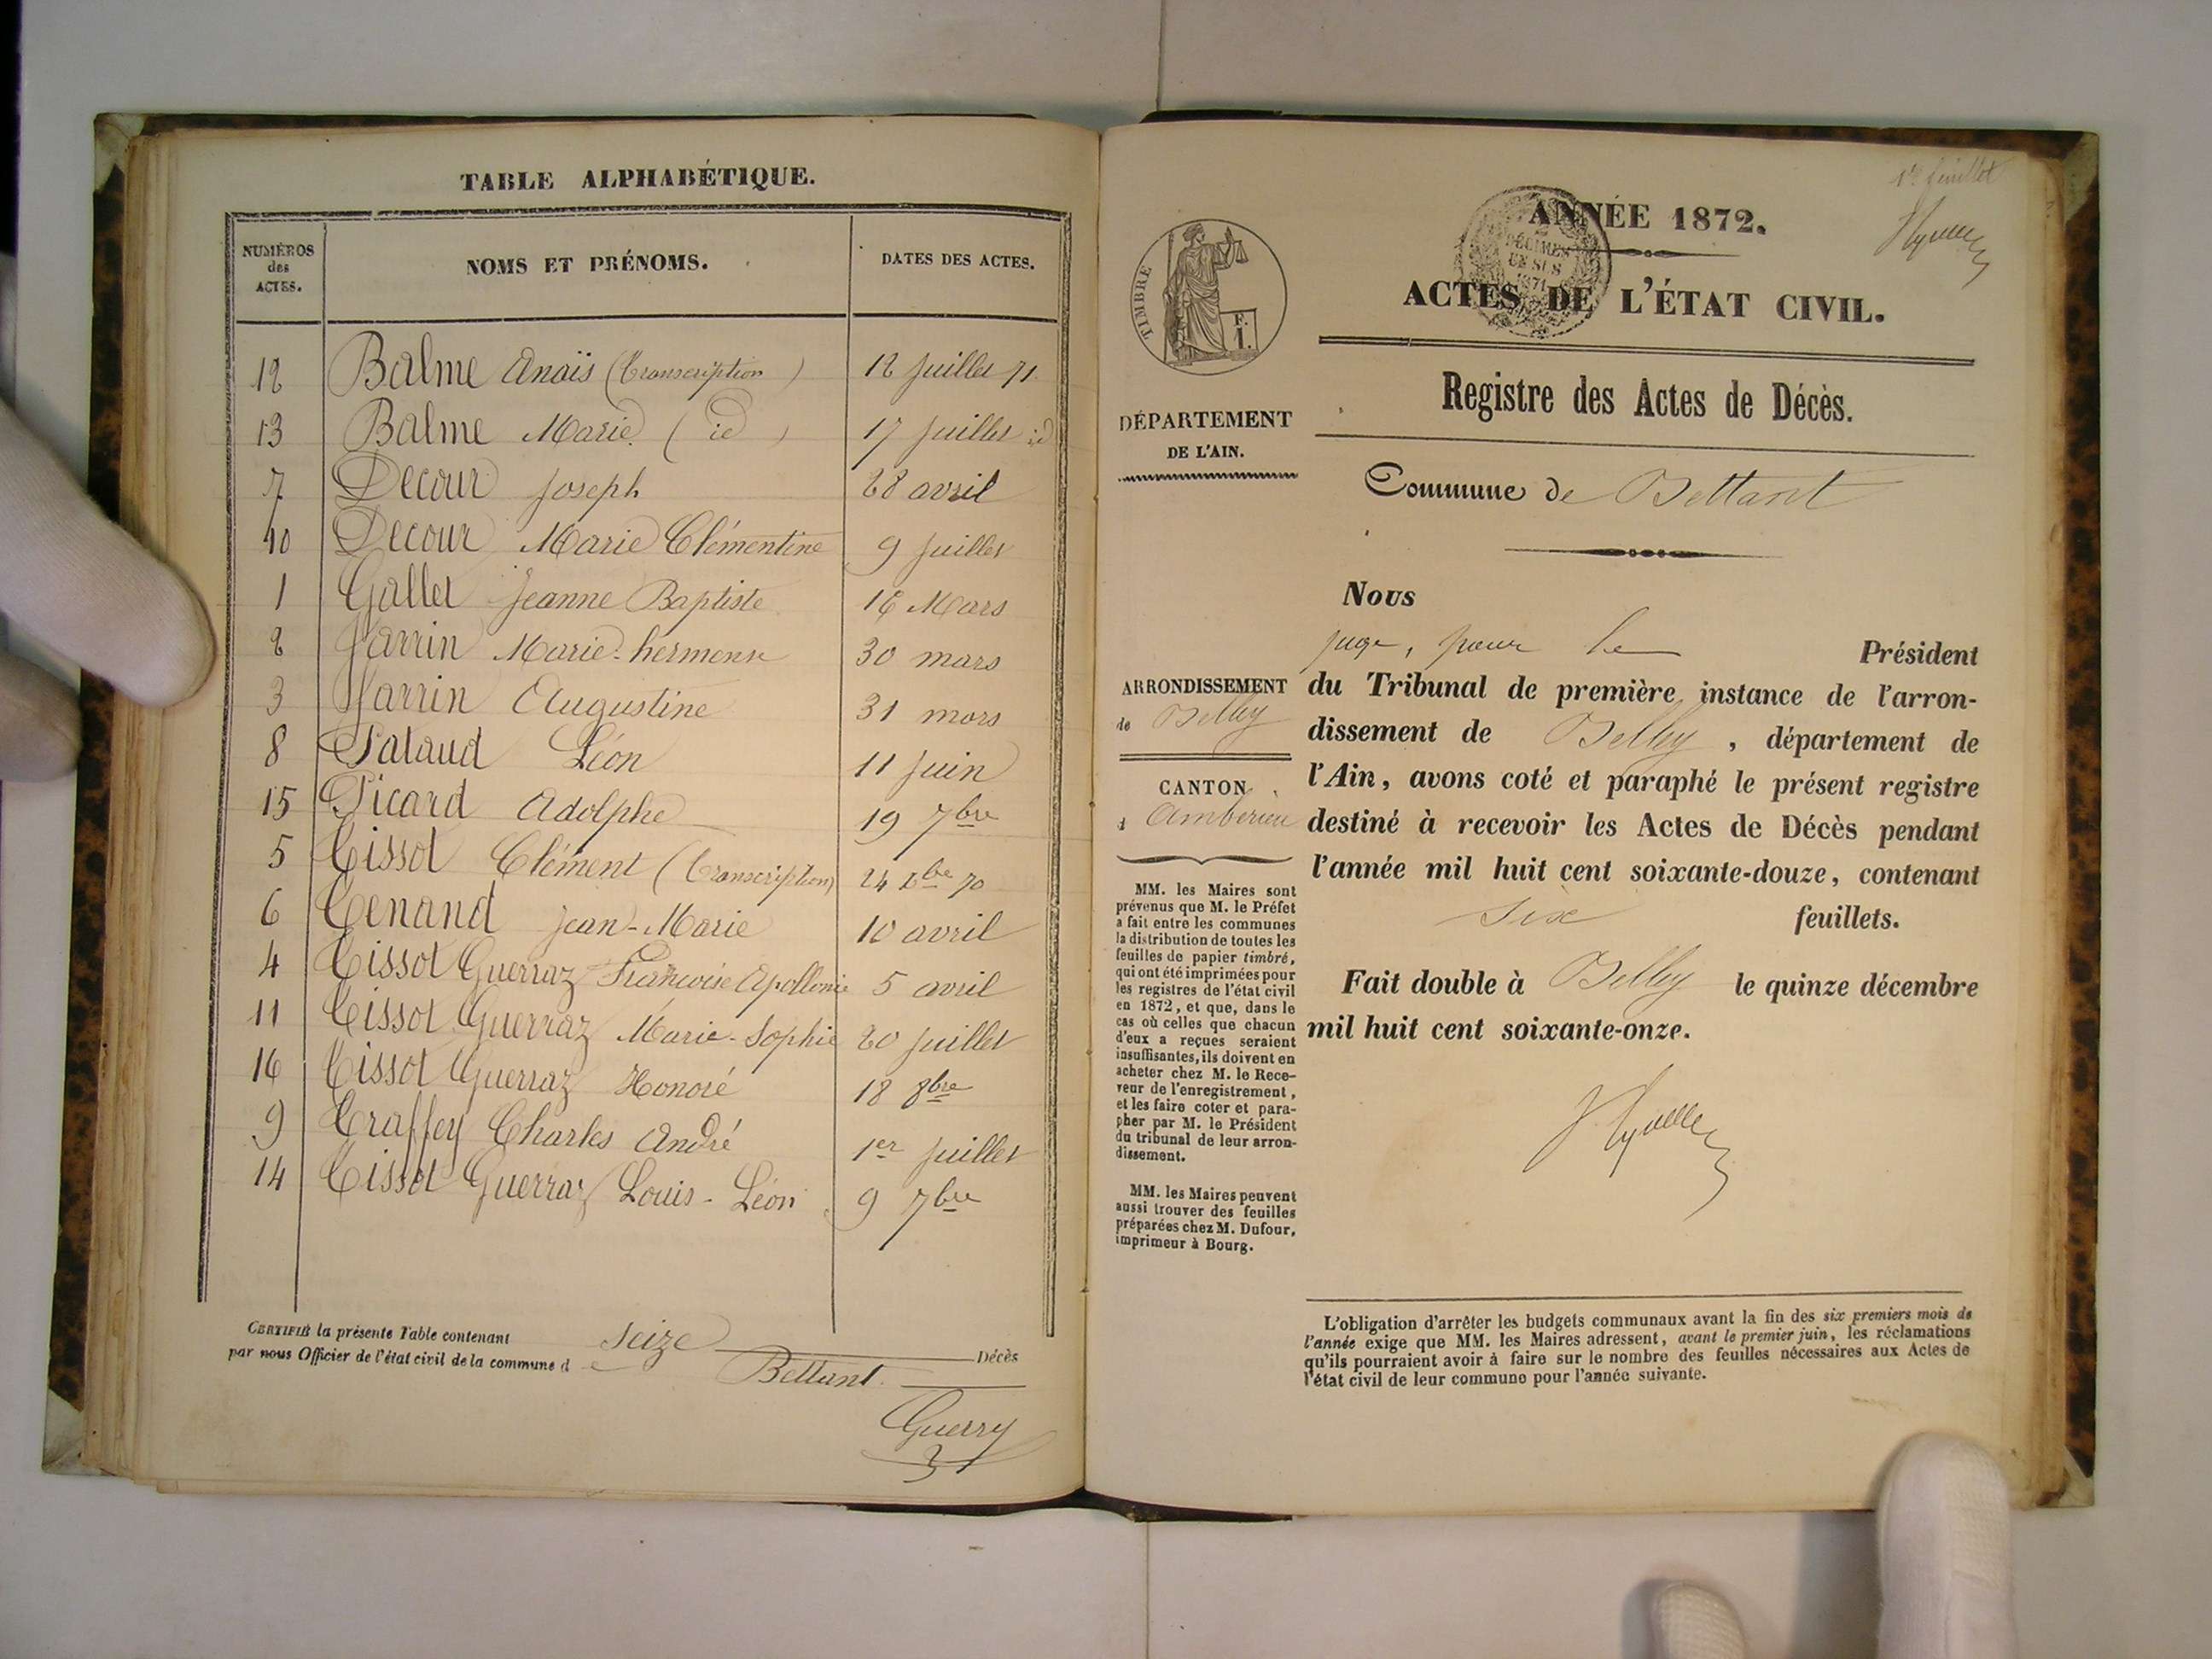 TABLE ALPHABÉTIQUE.
NUMÉROS des ACTES. NOMS ET PRÉNOMS. DATES DES ACTES.
12 Balme Anaïs (Transcription) 12 Juillet 71
13 Balme Marie (id) 17 Juillet id
7 Decour Joseph 28 avril
10 Decour Marie Clémentine 9 Juillet
1 Gallet Jeanne Baptiste 16 Mars
2 Jarrin Marie-hermense 30 mars
3 Jarrin Augustine 31 mars
8 Pataud Léon 11 Juin
15 Picard Adolphe 19 7bre
5 Tissot Clément (Transcription) 24 Xbre 70
6 Tenand Jean-Marie 10 avril
4 Tissot Guerraz Françoise Apollonie 5 avril
11 Tissot Guerraz Marie-Sophie 20 Juillet
16 Tissot Guerraz Honoré 18 8bre
9 Traffey Charles André 1er Juillet
14 Tissot Guerraz Louis-Léon 9 7bre
CERTIFIÉ la présente Table contenant Seize Décès
par nous Officier de l'état civil de la commune de Bettant.
Guerry
1er feuillet
TIMBRE
F.
1.
ANNÉE 1872.
DÉCIMES
EN SUS
1871
ACTES DE L'ÉTAT CIVIL.
Registre des Actes de Décès.
DÉPARTEMENT
DE L'AIN.
Commune de Bettant
Nous
juge, pour le Président
ARRONDISSEMENT
de Belley
CANTON
d Ambérieu
du Tribunal de première instance de l'arron-
dissement de Belley, département de
l'Ain, avons coté et paraphé le présent registre
destiné à recevoir les Actes de Décès pendant
l'année mil huit cent soixante-douze, contenant
six feuillets.
Fait double à Belley le quinze décembre
mil huit cent soixante-onze.
MM. les Maires sont
prévenus que M. le Préfet
a fait entre les communes
la distribution de toutes les
feuilles de papier timbré,
qui ont été imprimées pour
les registres de l'état civil
en 1872, et que, dans le
cas où celles que chacun
d'eux a reçues seraient
insuffisantes, ils doivent en
acheter chez M. le Rece-
veur de l'enregistrement,
et les faire coter et para-
pher par M. le Président
du tribunal de leur arron-
dissement.
MM. les Maires peuvent
aussi trouver des feuilles
préparées chez M. Dufour,
imprimeur à Bourg.
L'obligation d'arrêter les budgets communaux avant la fin des six premiers mois de
l'année exige que MM. les Maires adressent, avant le premier juin, les réclamations
qu'ils pourraient avoir à faire sur le nombre des feuilles nécessaires aux Actes de
l'état civil de leur commune pour l'année suivante.